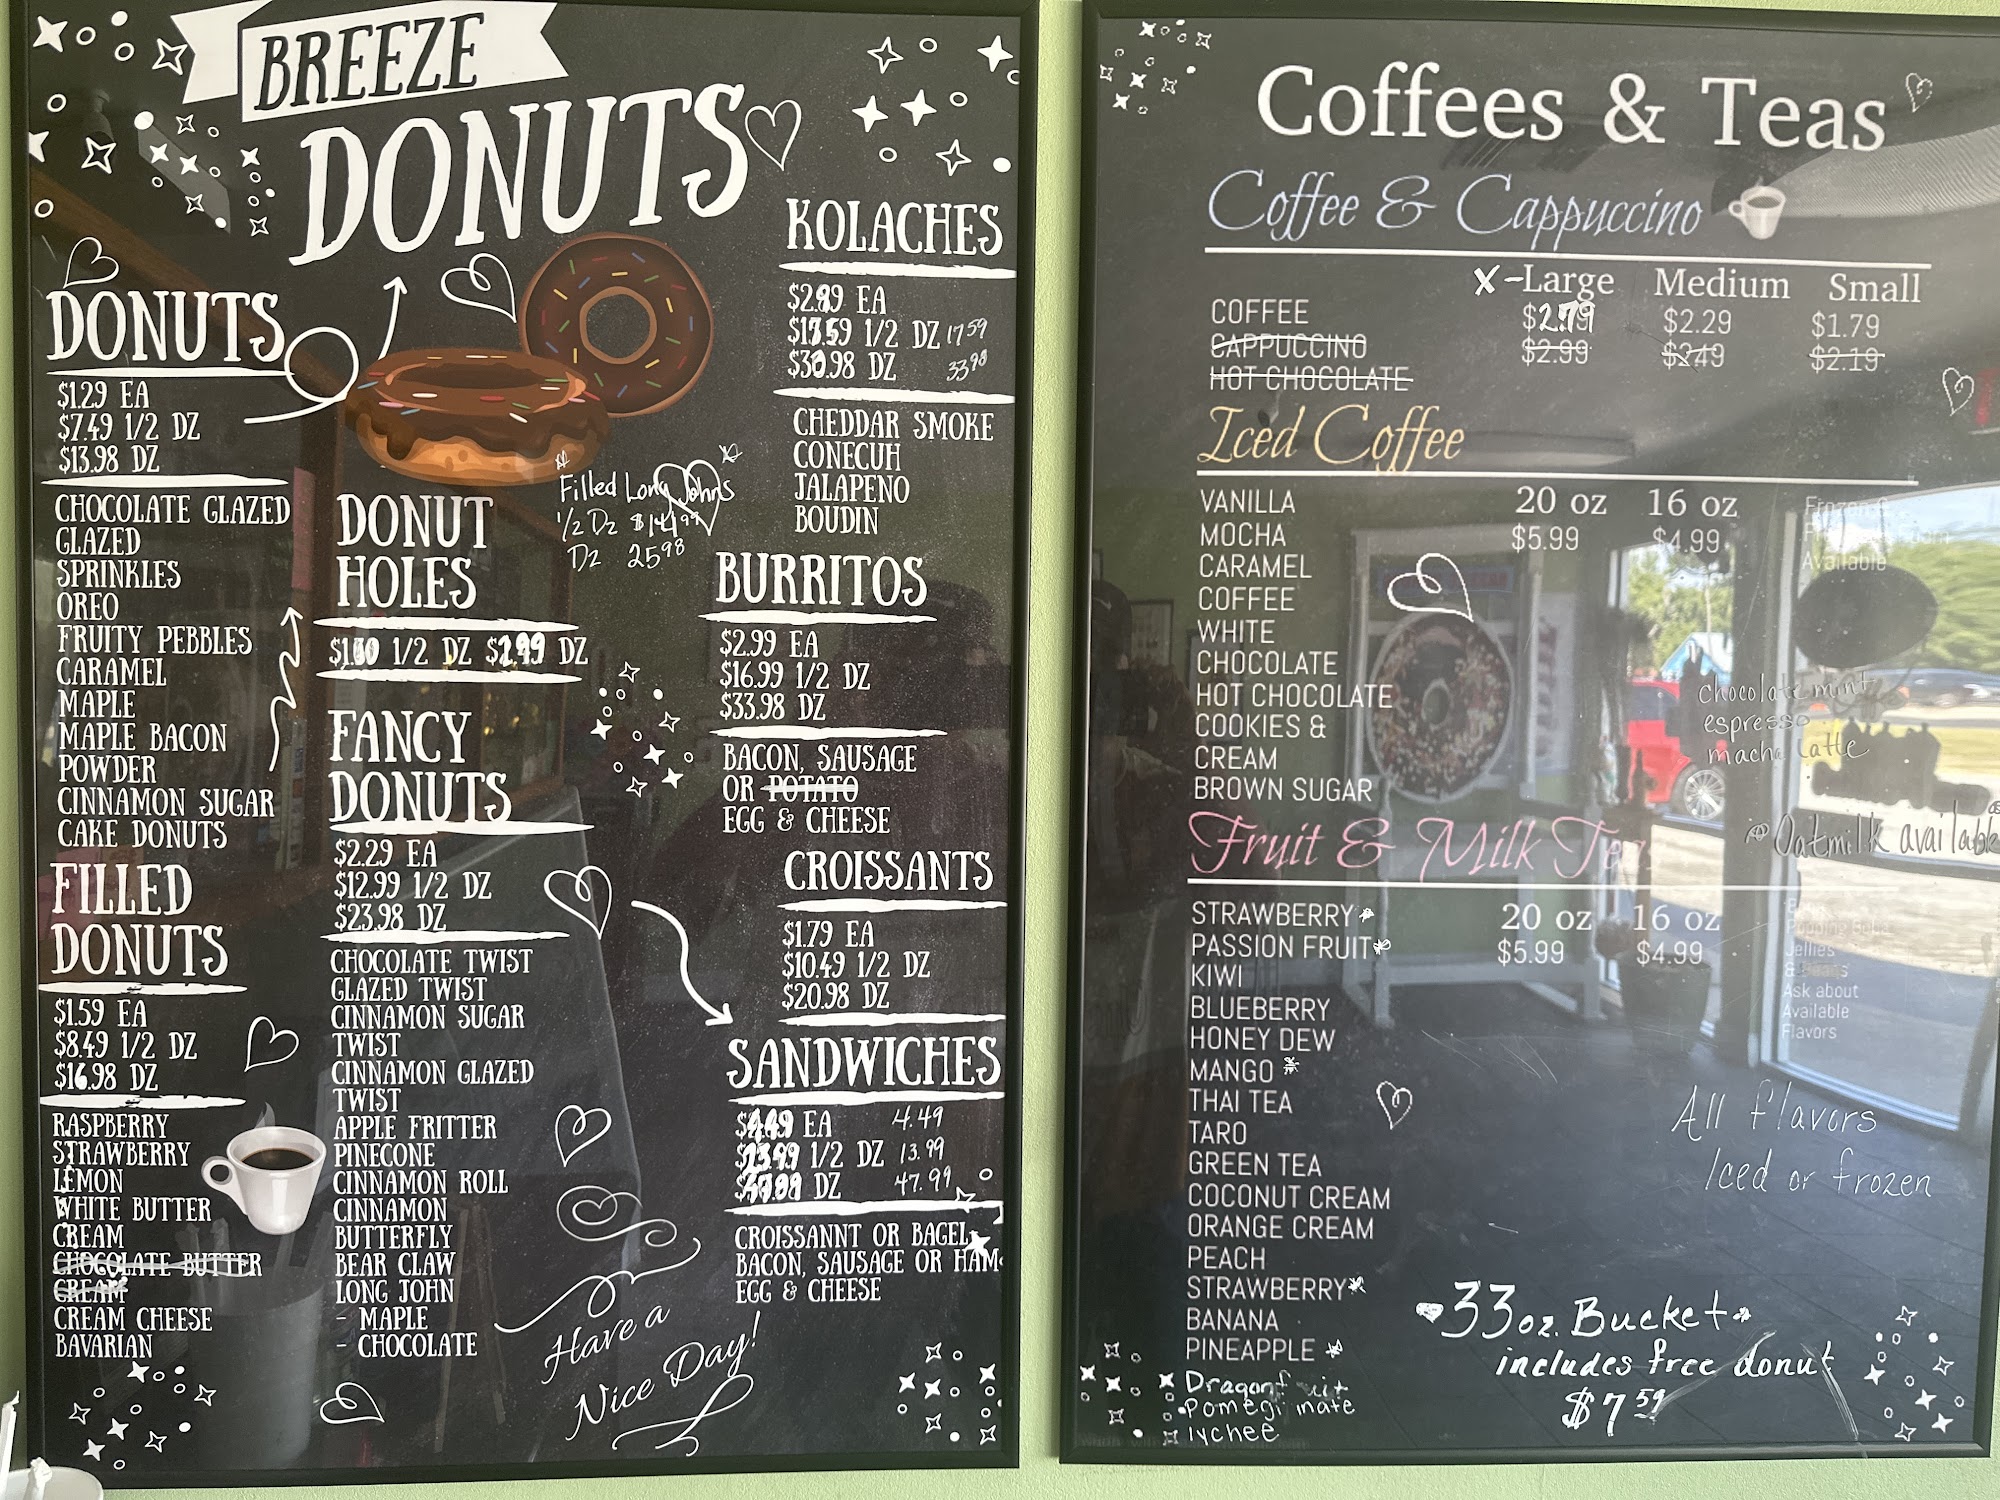 BREEZE
DONUTS
DONUTS
$1.29 EA
$7.49 1/2 DZ
$13.98 DZ
CHOCOLATE GLAZED
GLAZED
SPRINKLES
OREO
FRUITY PEBBLES
CARAMEL
MAPLE
MAPLE BACON
POWDER
CINNAMON SUGAR
CAKE DONUTS
FILLED
DONUTS
$1.59 EA
$8.49 1/2 DZ
$16.98 DZ
RASPBERRY
STRAWBERRY
LEMON
WHITE BUTTER
CREAM
CHOCOLATE BUTTER
CREAM
CREAM CHEESE
BAVARIAN
DONUT
HOLES
1/2 DZ DZ
FANCY
DONUTS
$2.29 EA
$12.99 1/2 DZ
$23.98 DZ
CHOCOLATE TWIST
GLAZED TWIST
CINNAMON SUGAR
TWIST
CINNAMON GLAZED
TWIST
APPLE FRITTER
PINECONE
CINNAMON ROLL
CINNAMON
BUTTERFLY
BEAR CLAW
LONG JOHN
- MAPLE
- CHOCOLATE
Filled Long Johns
1/2 Dz $14.99
Dz 25.98
KOLACHES
EA
1/2 DZ 17.59
DZ 33.98
CHEDDAR SMOKE
CONECUH
JALAPENO
BOUDIN
BURRITOS
$2.99 EA
$16.99 1/2 DZ
$33.98 DZ
BACON, SAUSAGE
OR POTATO
EGG & CHEESE
CROISSANTS
$1.79 EA
$10.49 1/2 DZ
$20.98 DZ
SANDWICHES
EA 4.49
1/2 DZ 13.99
DZ 47.99
CROISSANNT OR BAGEL
BACON, SAUSAGE OR HAM
EGG & CHEESE
Have a
Nice Day!
Coffees & Teas
Coffee & Cappuccino
X-Large Medium Small
COFFEE $2.79 $2.29 $1.79
CAPPUCCINO $2.99 $2.49 $2.19
HOT CHOCOLATE
Iced Coffee
20 oz 16 oz
$5.99 $4.99
VANILLA
MOCHA
CARAMEL
COFFEE
WHITE
CHOCOLATE
HOT CHOCOLATE
COOKIES &
CREAM
BROWN SUGAR
Available
chocolate mint
espresso
macha Latte
Oatmilk available
Fruit & Milk
20 oz 16 oz
$5.99 $4.99
STRAWBERRY
PASSION FRUIT
KIWI
BLUEBERRY
HONEY DEW
MANGO
THAI TEA
TARO
GREEN TEA
COCONUT CREAM
ORANGE CREAM
PEACH
STRAWBERRY
BANANA
PINEAPPLE
Dragonfruit
Pomegranate
lychee
Jellies
Ask about
Available
Flavors
All flavors
Iced or frozen
33oz. Bucket
includes free donut
$7.59